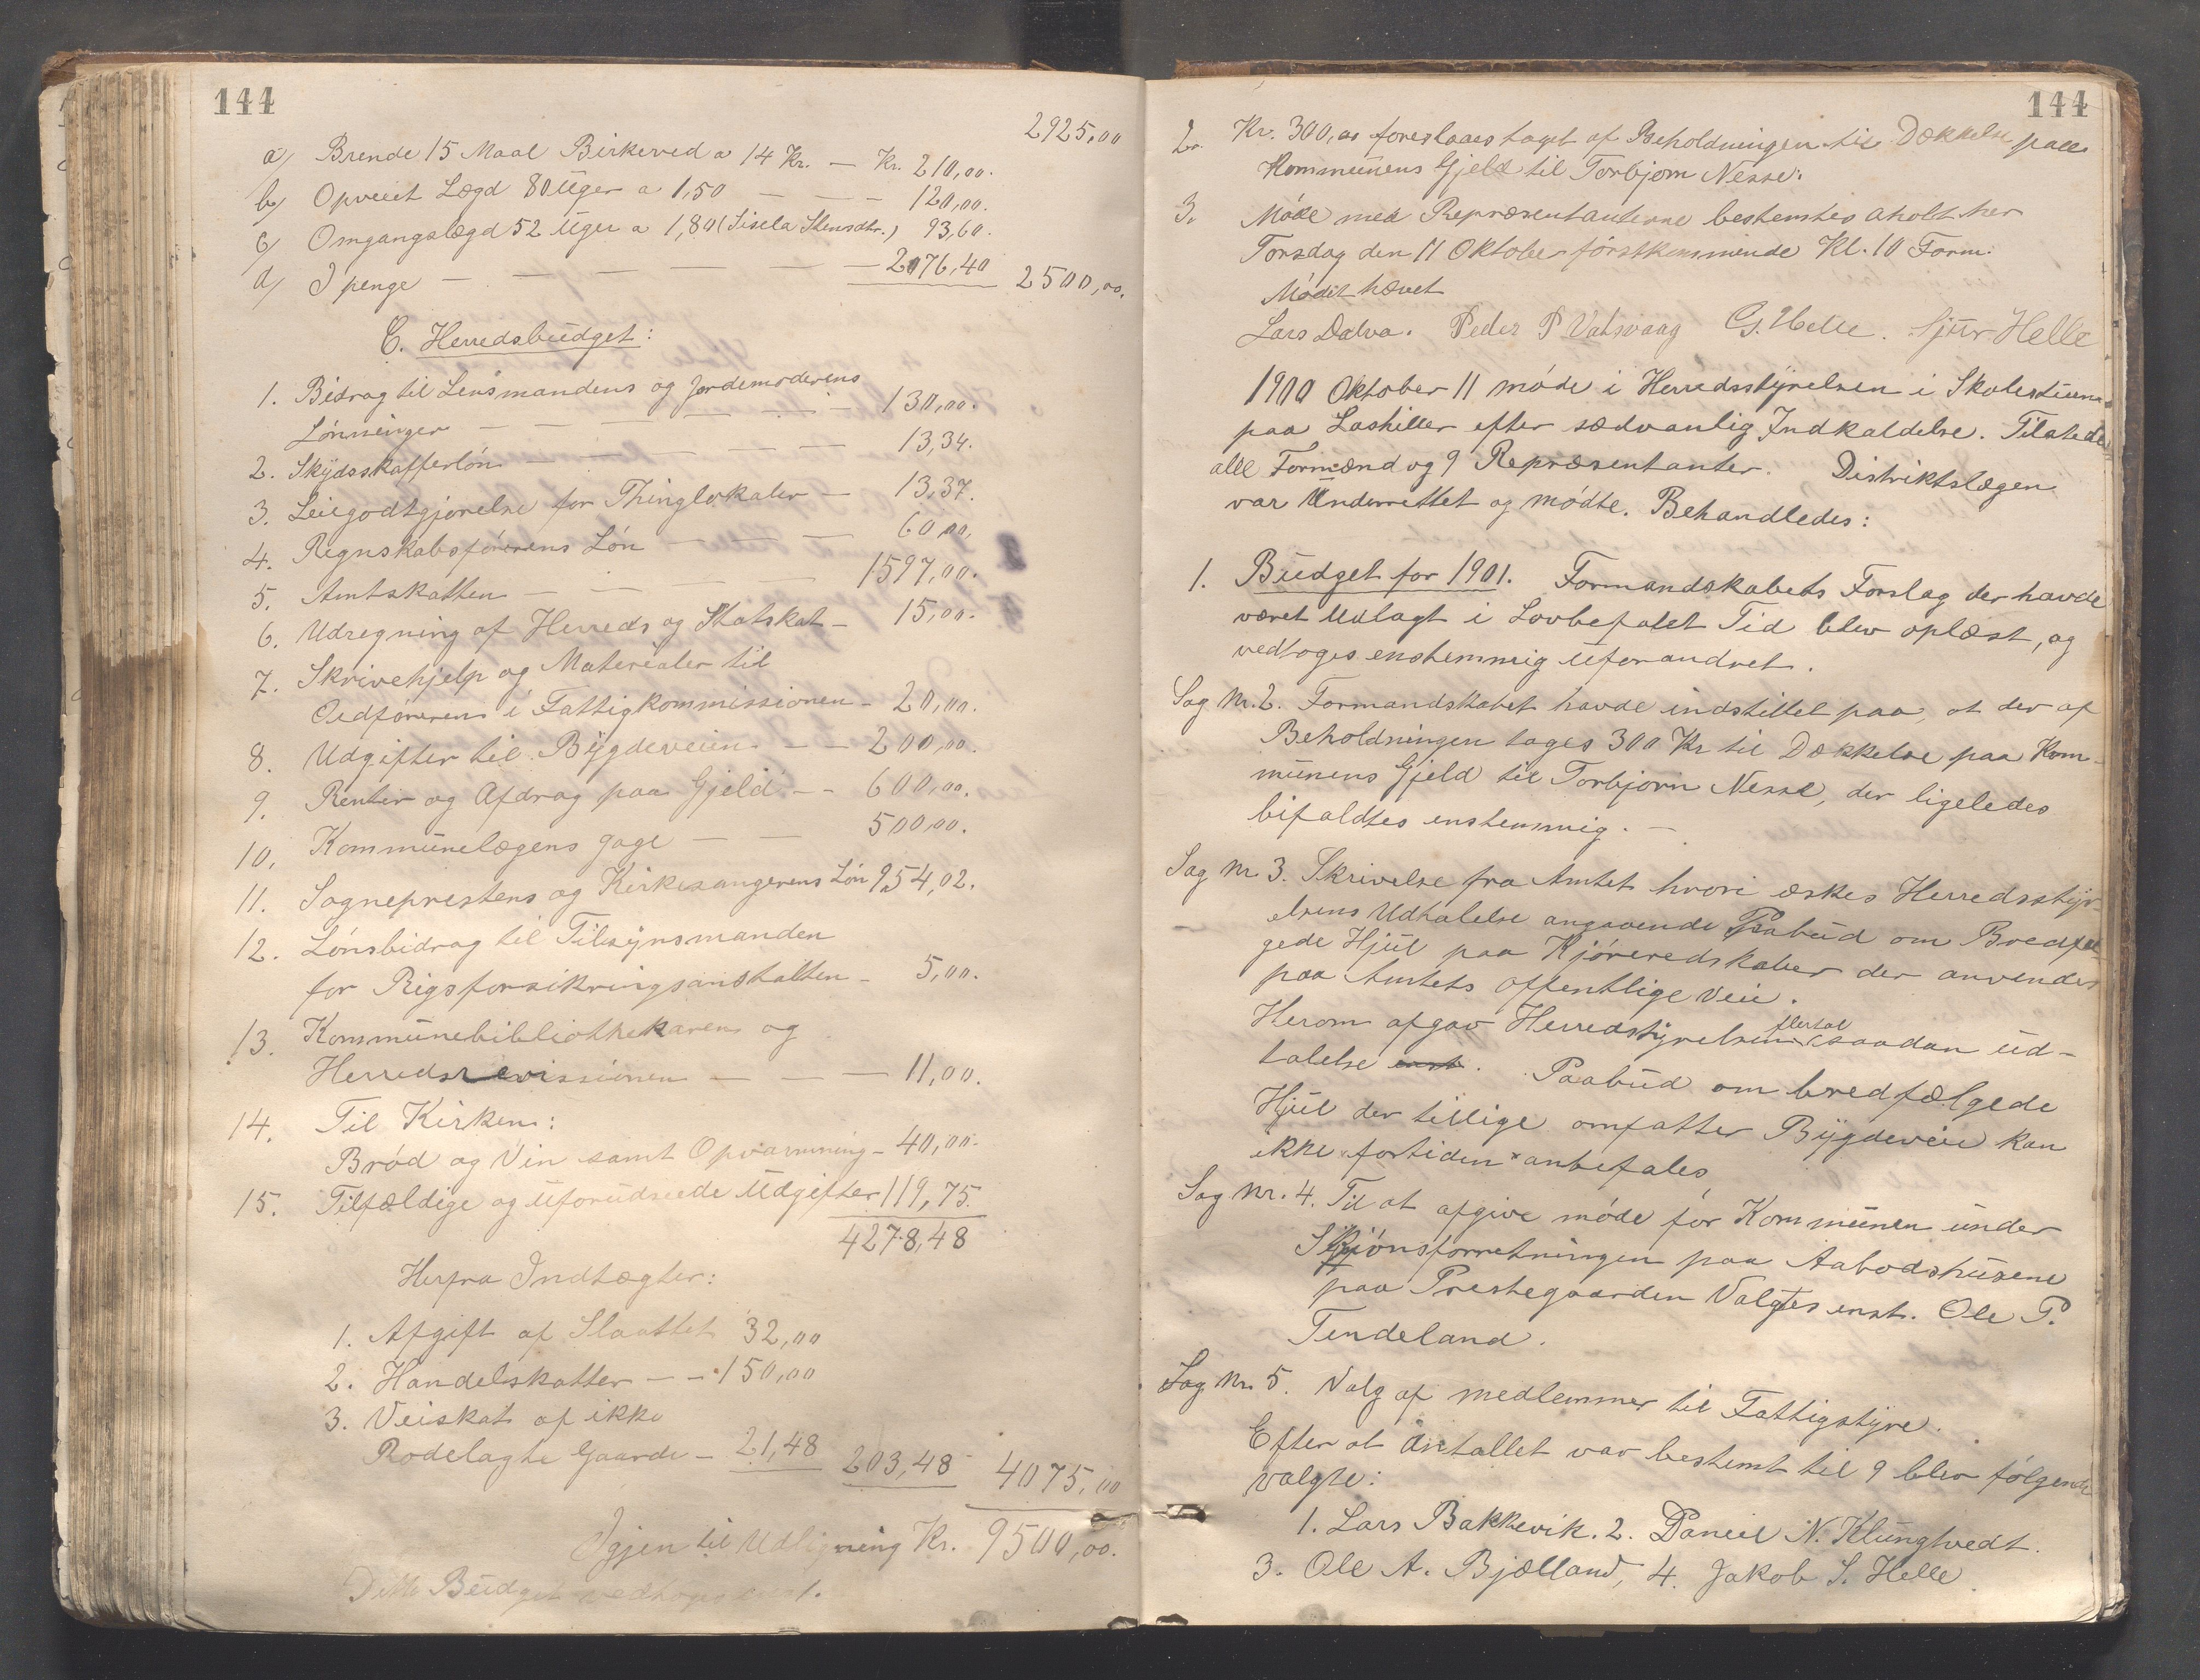 144
2925,00
a) Brende 15 Maal Birkeved a 14 Kr. — Kr. 210,00.
b) Opveiet Lægd 80 Uger a 1,50 — — — 120,00.
c) Omgangslægd 52 Uger a 1,80 (Sisela Stensdtr.) 93,60.
d) I penge — — — — — — 2076,40 2500,00.
C. Herredsbudget:
1. Bidrag til Lensmandens og Jordemoderens
Lønninger — — — — — 130,00.
2. Skydsskafferløn — — — — — 13,34.
3. Leiegodtgjørelse for Thinglokaler — 13,37.
4. Regnskabsførerens Løn — — — 60,00.
5. Amtskatten — — — — 1597,00.
6. Udregning af Herreds og Statskat — 15,00.
7. Skrivehjelp og Materialer til
Ordføreren i Fattigkommissionen — 20,00.
8. Udgifter til Bygdeveien — — 200,00.
9. Renter og Afdrag paa Gjeld — — 600,00.
10. Kommunelægens gage — — 500,00.
11. Sogneprestens og Kirkesangerens Løn 954,02.
12. Lønsbidrag til Tilsynsmanden
for Rigsforsikringsanstalten — 5,00.
13. Kommunebibliothekaren og
Herredsrevissionen — — — 11,00.
14. Til Kirken:
Brød og Vin samt Opvarmning — 40,00.
15. Tilfældige og Uforudseede Udgifter 119,75.
4278,48
Herfra Indtægter:
1. Afgift af Slaattet 32,00
2. Handelskatter — — 150,00
3. Veiskat af ikke
Rodelagte Gaarde — 21,48 203,48 4075,00
Igjen til Udligning Kr. 9500,00.
Dette Budget vedtoges enst.
144
2. Kr. 300,00 foreslaaes taget af Beholdningen til Dækkelse paa
Kommunens Gjeld til Torbjørn Nesse.
3. Møde med Repræsentanterne bestemtes aholdt her
Torsdag den 11 Oktober førstkommende Kl. 10 Form.
Mødet hævet
Lars Dalva. Peder P Vatsvaag G. Helle. Sjur Helle
1900 Oktober 11 møde i Herredsstyrelsen i Skolestuen
paa Lashiller efter sædvanlig Indkaldelse. Tilstede
alle Formænd og 9 Repræsentanter. Distriktslægen
var Underrettet og mødte. Behandledes:
1. Budget for 1901. Formandskabets Forslag der havde
været Udlagt i Lovbefalet Tid blev oplæst, og
vedtoges enstemmig uforandret.
Sag Nr. 2. Formandskabet havde indstillet paa, at der af
Beholdningen tages 300 Kr til Dækkelse paa Kom-
munens Gjeld til Torbjørn Nesse, der ligeledes
bifaldtes enstemmig. —
Sag Nr. 3. Skrivelse fra Amtet hvori æskes Herredsstyr-
elsens Udtalelse angaaende Paabud om Bredfæl-
gede Hjul paa Kjøreredskaber der anvendes
paa Amtets offentlige Veie.
Herom afgav Herredstyrelsens flertal saadan ud-
talelse enst. Paabud om bredfælgede
Hjul der tillige omfatter Bygdeveie kan
ikke fortiden anbefales
Sag Nr. 4. Til at afgive møde for Kommunen under
Skjønsforretningen paa Aabodshusene
paa Prestegaarden Valgtes enst. Ole P.
Tendeland.
Sag Nr. 5. Valg af medlemmer til Fattigstyre.
Efter at Antallet var bestemt til 9 blev følgende
valgte:
1. Lars Bakkevik. 2. Daniel N. Klungtvedt.
3. Ole A. Bjælland, 4. Jakob S. Helle.